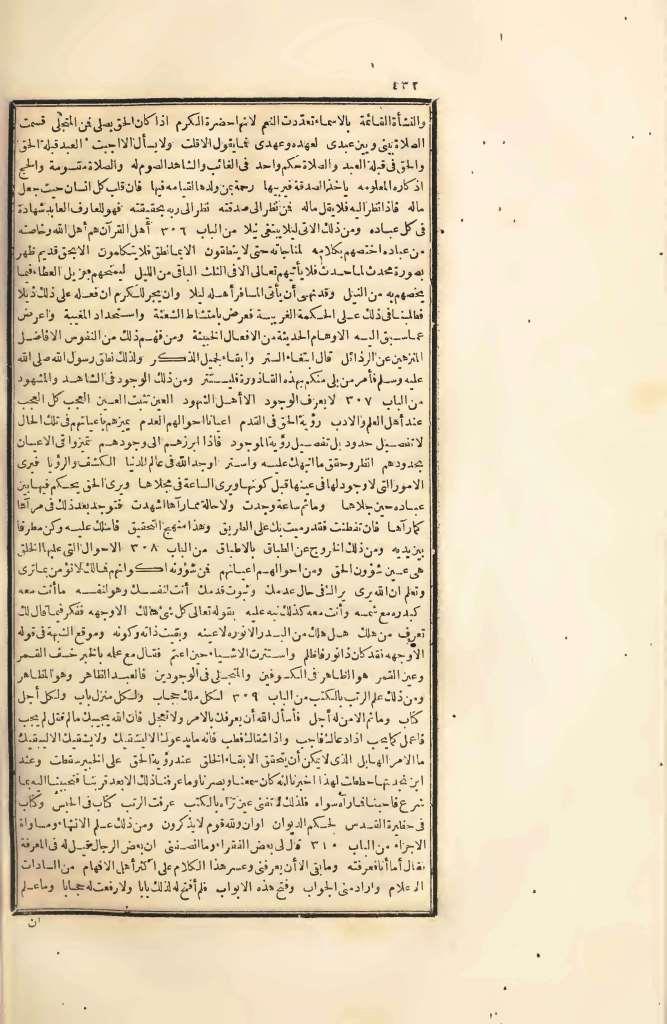 ٤٣٢
والنشأة القائمة بالاسماء تعدّدت النعم لانها حضرة الكرم اذا كان الحق يصلى فمن المتجلى قسمت
الصلاة بينى وبين عبدى لعهده وعهدى فما يقول الا قلت ولا يسأل الا اجبت العبد قبلة الحق
والحق فى قبلة العبد والصلاة حكم واحد فى الغائب والشاهد الصوم له والصلاة مقسومة والحج
اذكاره المعلومه ياخذ الصدقة فيربيها رحمة بمن ولدها القيامه فيها فان قلب كل انسان حيث جعل
ماله فاذا نظر اليه فلا يقل ماله فمن نظر الى صدقته نظر الى ربه بحقيقته فهو للعارف العابد شهادة
فى كل عباده ومن ذلك الاتى ليلا يبتغى نيلا من الباب ٣٠٦ أهل القرآن هم أهل الله وخاصته
من عباده اختصهم بكلامه لمناجاته حتى لا ينطقون الا بما نطق فلا يتكلمون الا بحق قديم ظهر
بصورة محدث لما حدث فلا يأتيهم تعالى الا فى الثلث الباقى من الليل ليمنحهم جزيل العطاء فيما
يخصهم به من النيل وقد نهى أن يأتى المسافر أهله ليلا وان يجر للكرم ان فعله على ذلك ذيلا
فطلبنا فى ذلك على الحكمة الغريبة فعرض بامتشاط الشعثة واستحداد المغيبة واعرض
عما سبق اليه الاوهام الحديثة من الافعال الخبيثة ومن فهم ذلك من النفوس الافاضل
المنزهين عن الرذائل قال ابتغاء الستر وابقاء لجميل الذكر ولذلك نطق رسول الله صلى الله
عليه وسلم فأمر من بلى منكم بهذه القاذورة فليستتر ومن ذلك الوجود فى الشاهد والمشهود
من الباب ٣٠٧ لا يعرف الوجود الا أهل الشهود العين تثبت العين العجب كل العجب
عند أهل العلم والادب رؤية الحق فى القدم اعيانا احوالهم العدم يميزهم بأعيانهم فى تلك الحال
لا تفصيل حدود بل تفصيل رؤية الموجود فاذا ابرزهم الى وجودهم تميزوا فى الاعيان
بحدودهم انظر وحقق ما انبهك عليه واستر اوجد الله فى عالم الدنيا الكشف والرؤيا فيرى
الامور التى لا وجود لها فى عينها قبل كونها ويرى الساعة فى مجلاها ويرى الحق يحكم فيها بين
عباده حين جلاها وما ثم ساعة وجدت ولا حالة مما رآها شهدت فتوجد بعد ذلك فى مرآها
كما رآها فان تفطنت فقد رميت بك على الطريق وهذا منهج التحقيق فاسلك عليه وكن مطرقا
بين يديه ومن ذلك الخروج عن الطباق بالاطباق من الباب ٣٠٨ الاحوال التى عليها الخلق
هى عين شؤون الحق ومن احوالهم اعيانهم فمن شؤونه اكوانهم فمالك لا تؤمن بما ترى
وتعلم ان الله يرى يراك فى حال عدمك وثبوت قدمك أنت لنفسك وهو لنفسه ما أنت معه
كبدره مع شمسه وأنت معه كذلك نبه عليه بقوله تعالى كل شئ هالك الا وجهه ففكر فيما قال لك
تعرف من هلك هل هلك من البدر الا نوره لا عينه وبقيت ذاته وكونه وموقع الشبهة فى قوله
الا وجهه نقد كان ذا نور فاظلم واستترت الاشياء حين اعتم فقال مع علمه بالخبر خسف القمر
وعين القمر هو الظاهر فى الكسوفين والمتجلى فى الوجودين فالعبد الظاهر وهو المظاهر
ومن ذلك علم الرتب بالكتب من الباب ٣٠٩ لكل ملك حجاب ولكل منزل باب ولكل أجل
كتاب وما ثم الا من له أجل فأسأل الله أن يعرفك بالامر ولا تعجل فان الله يجيبك ما لم تقل لم يجب
فاعمل كما يجب اذا دعاك فاجب واذا سقاك فطب فانه ما يدعوك الا ليشقيك ولا يشقيك الا ليبقيك
ما الامر الهايل الذى لا يمكن أن يتحقق الا بقاء الخلق عند رؤية الحق على الخبير سقطت وعند
ابن بجدتها حططت لهذا اخبرنا انه كان سمعنا وبصرنا وما عرفنا ذلك الا بعد قربنا فتحببنا اليه بما
شرع فاحبنا فارآه سواه فلذلك لا تفنى عين تراه بالكتب عرفت الرتب كتاب فى الحبس وكتاب
فى حظيرة القدس لحكم الديوان اوان ولله قوم لا يذكرون ومن ذلك علم الانتهاء ومساواة
الاجزاء من الباب ٣١٠ قال لى بعض الفقراء وما انصفنى ان بعض الرجال قيل له فى المعرفة
فقال أما أنا فعرفته وما بقى الا أن يعرفنى وعسر هذا الكلام على أكثر أهل الافهام من السادات
الاعلام وارادمنى الجواب وفتح هذه الابواب فلم أفتح له لذلك بابا ولا رفعت له حجابا وما علم
ان